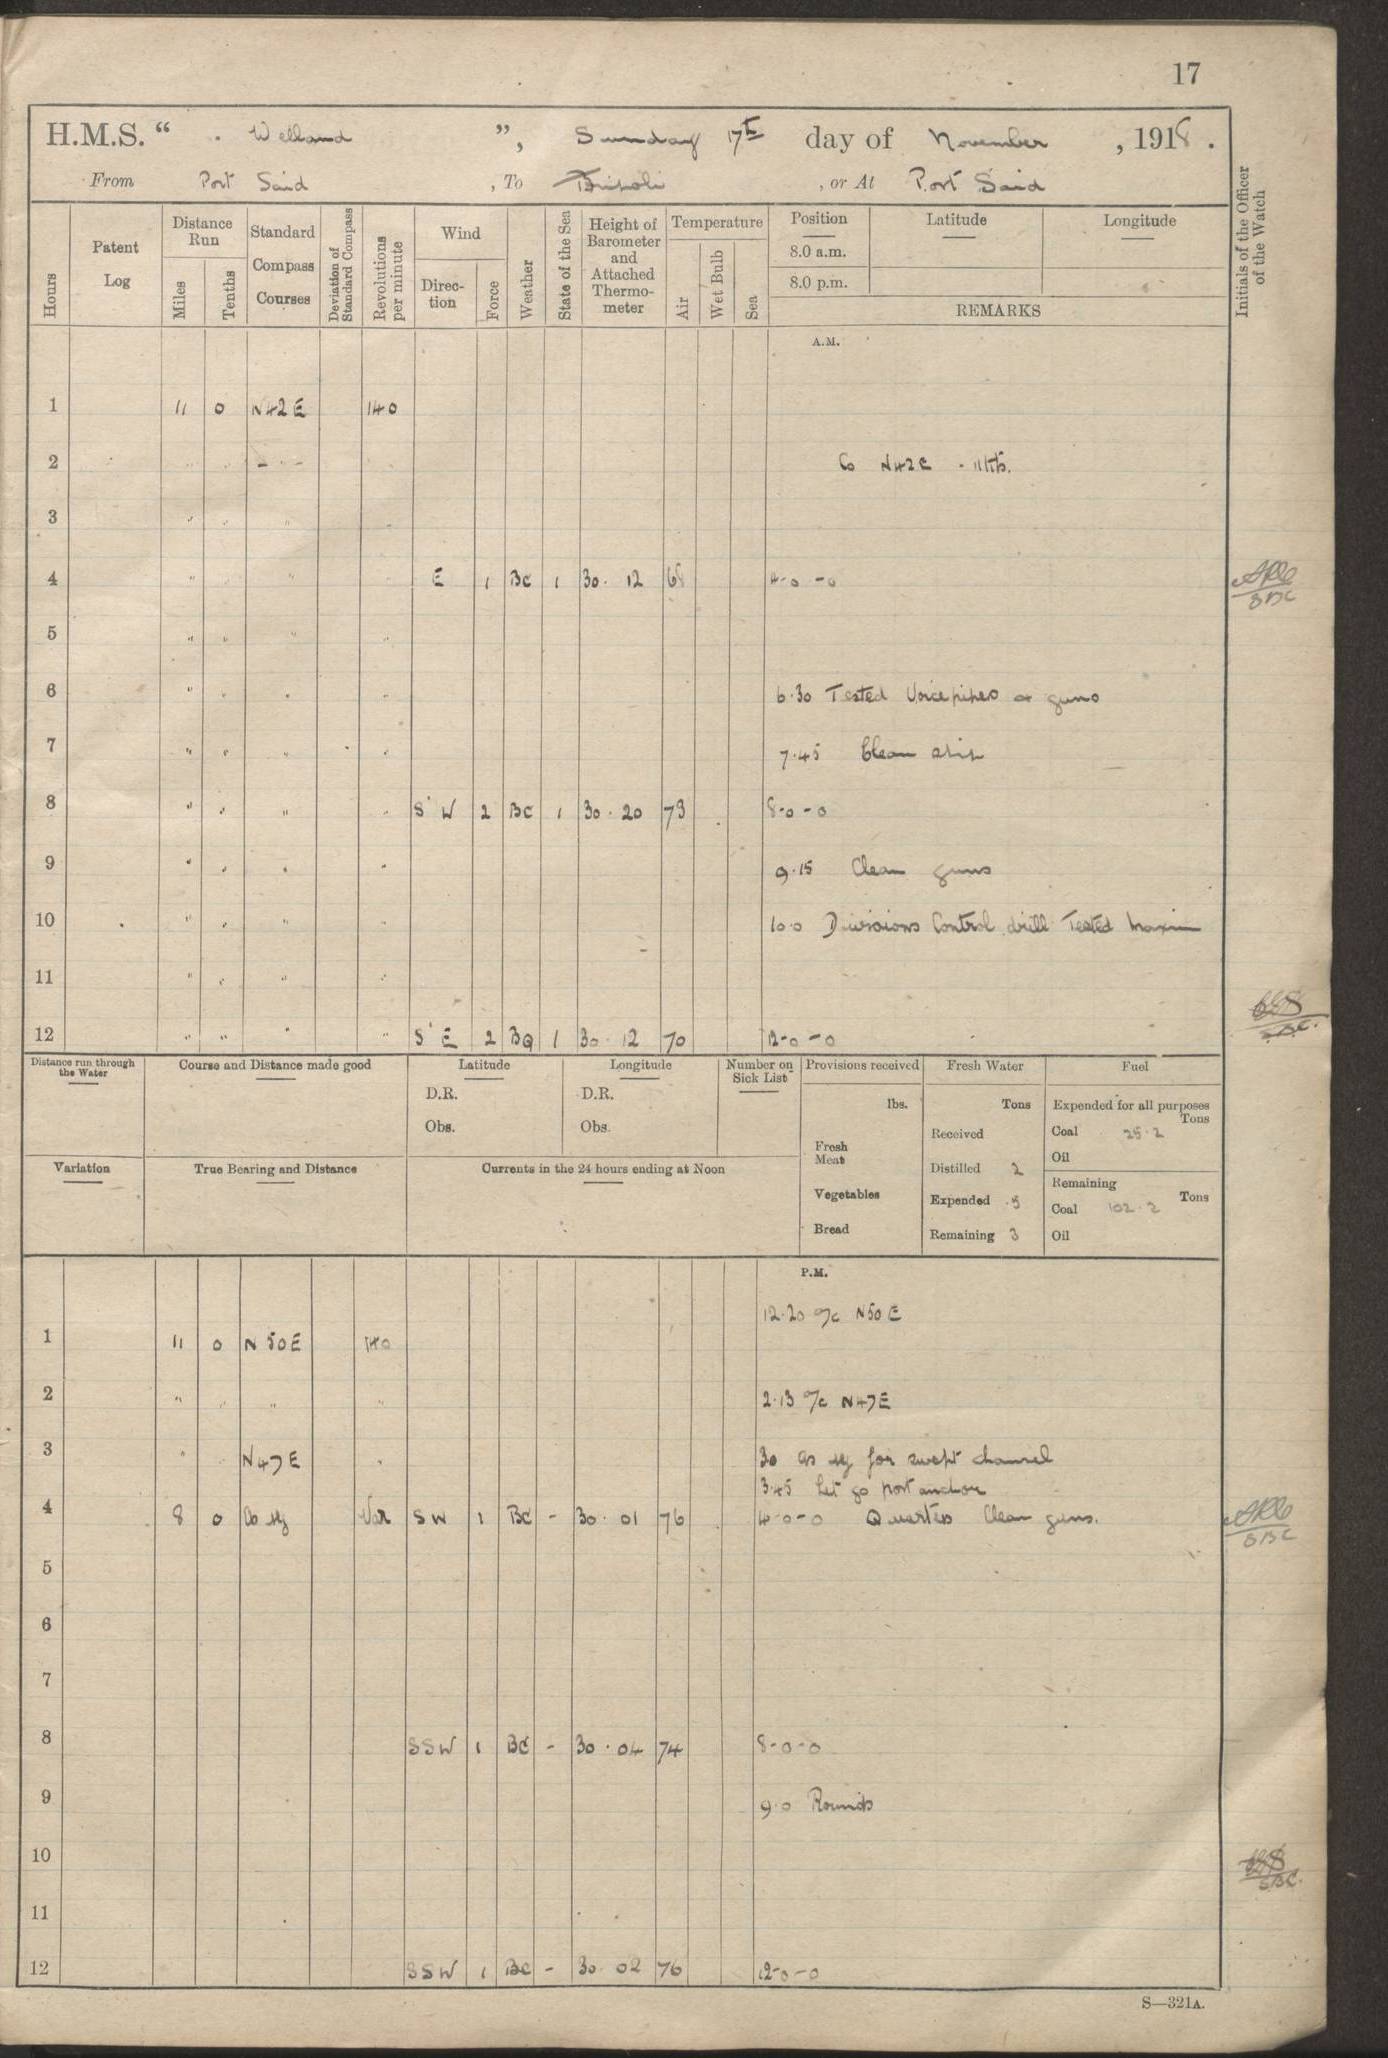 17
H.M.S. “ Welland ”, Sunday 17th day of November, 1918.
From Port Said, To Tripoli, or At Port Said
Hours
Patent Log
Distance Run
Miles
Tenths
Standard Compass Courses
Deviation of Standard Compass
Revolutions per minute
Wind
Direction
Force
Weather
State of the Sea
Height of Barometer and Attached Thermometer
Temperature
Air
Wet Bulb
Sea
Position Latitude Longitude
8.0 a.m.
8.0 p.m.
REMARKS
Initials of the Officer of the Watch
A.M.
1 11 0 N42E 140
2 " " - " - Co N42E - 11 kts.
3 " " " "
4 " " " " E 1 BC 1 30.12 68 4-0-0
5 " " " "
6 " " " " 6.30 Tested Voicepipes & guns
7 " " " " 7.45 Clean ship
8 " " " " S'W 2 BC 1 30.20 73 8-0-0
9 " " " " 9.15 Clean guns
10 " " " " 10.0 Divisions Control drill Tested Maxim
11 " " " "
12 " " " " S'E 2 BC 1 30.12 70 12-0-0
Distance run through the Water
Course and Distance made good
Latitude
D.R.
Obs.
Longitude
D.R.
Obs.
Number on Sick List
Provisions received
lbs.
Fresh Meat
Vegetables
Bread
Fresh Water
Tons
Received
Distilled 2
Expended .5
Remaining 3
Fuel
Expended for all purposes
Tons
Coal 25.2
Oil
Remaining
Tons
Coal 102.2
Oil
Variation
True Bearing and Distance
Currents in the 24 hours ending at Noon
P.M.
12.20 a/c N50E
1 11 0 N50E 140
2 " " " " 2.13 a/c N47E
3 " " N47E " 30 as nec for swept channel
3.45 Let go port anchor
4 8 0 Var SW 1 BC - 30.01 76 4-0-0 Quarters Clean guns.
5
6
7
8 SSW 1 BC - 30.04 74 8-0-0
9 9.0 Rounds
10
11
12 SSW 1 BC - 30.02 76 12-0-0
S—321A.